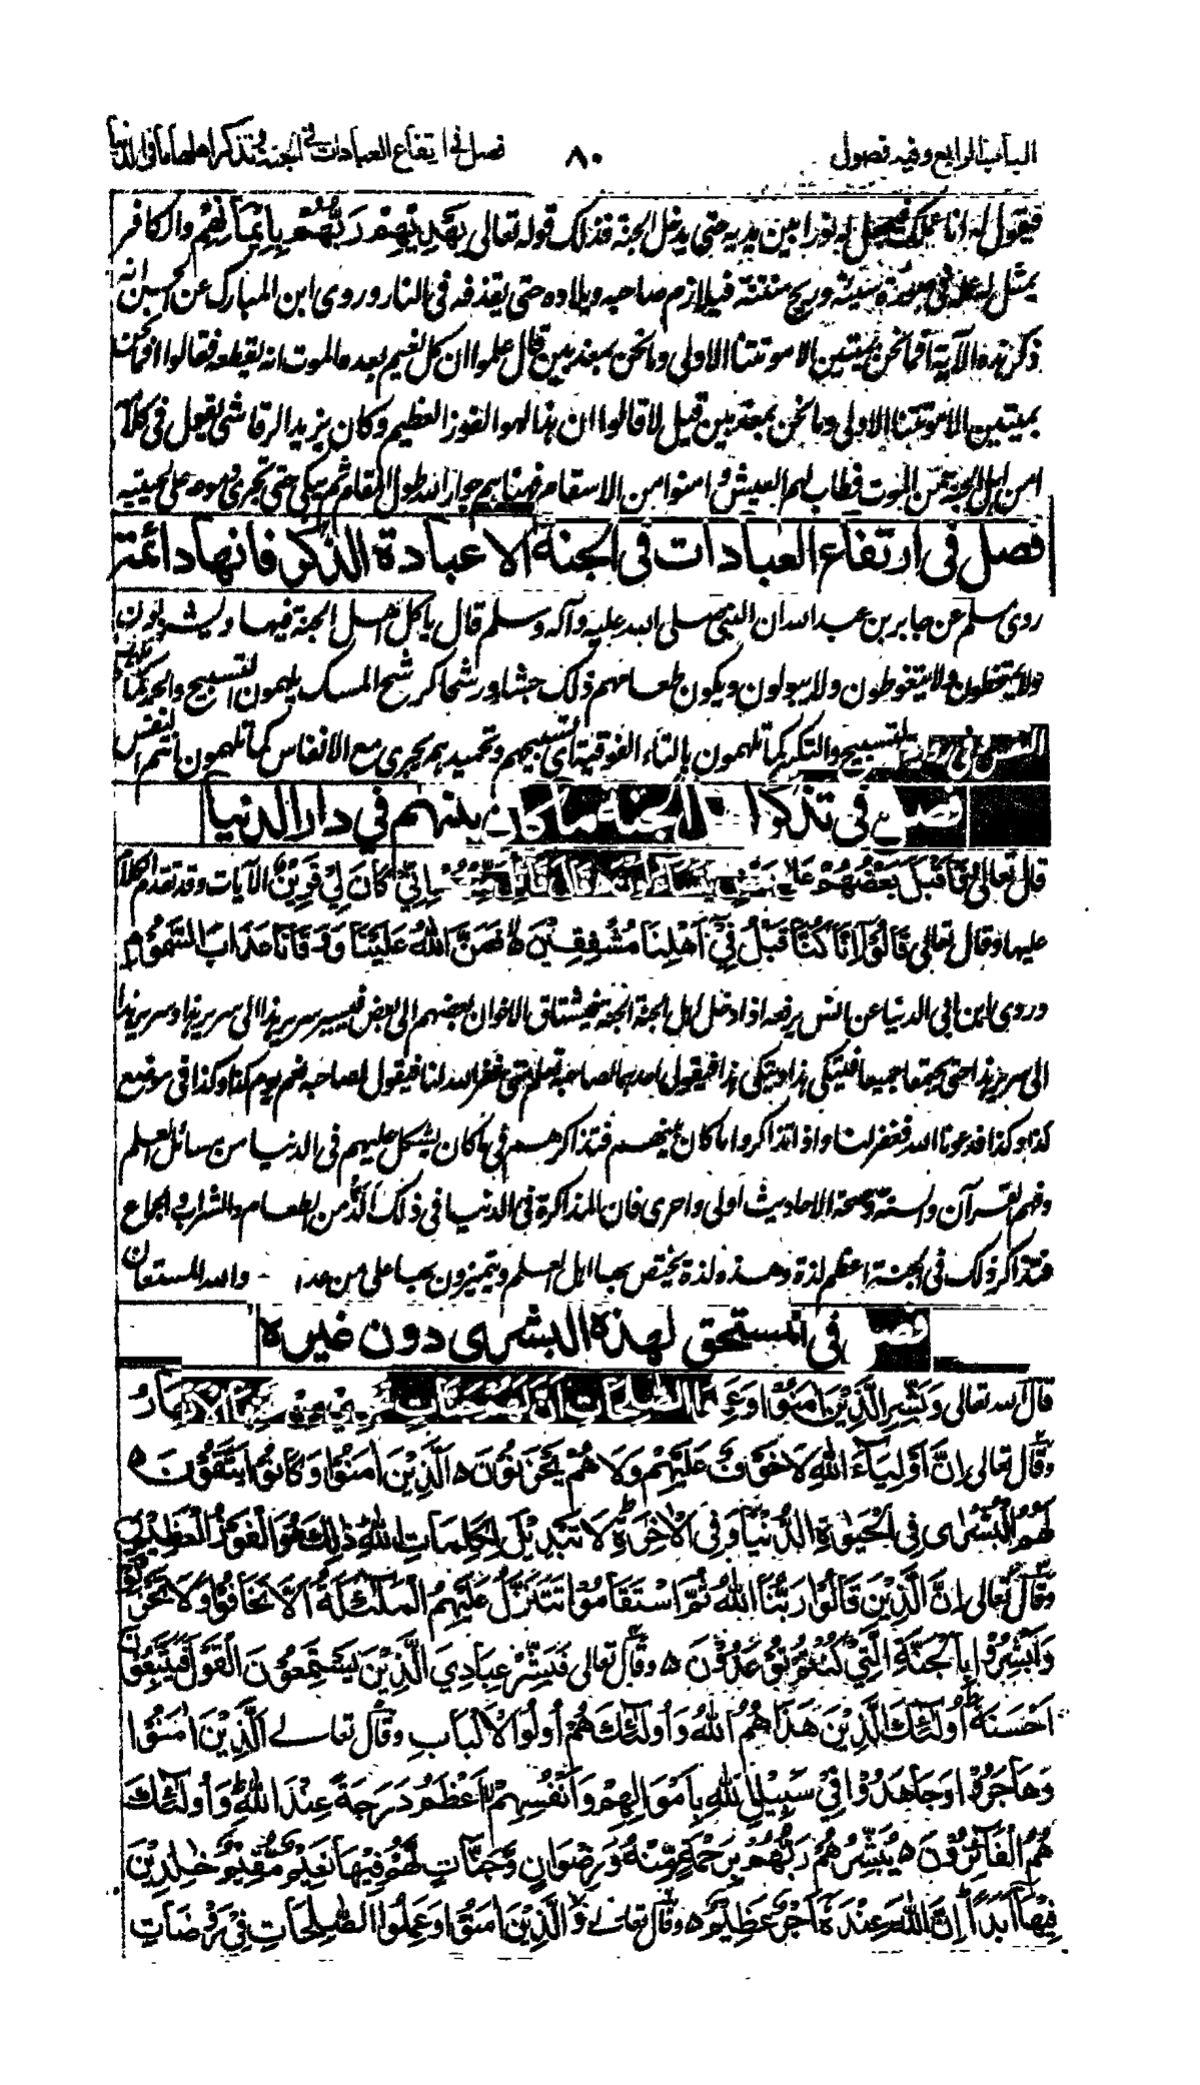 الباب الرابع وفيه فصول ٨٠ فصل في ارتفاع العبادات في الجنة وتذكر اهلها ما في الدنيا
فيقول له انا عملك فيجعل له نورا بين يديه حتى يدخل الجنة فذلك قوله تعالى يَهْدِيْهِمْ رَبُّهُمْ بِاِيْمَانِهِمْ والكافر
يمثل له عمله في صورة سيئة وريح منتنة فيلازم صاحبه ويلاده حتى يقذفه في النار وروى ابن المبارك عن الحسن انه
ذكر هذه الآية افما نحن بميتين الا موتتنا الاولى وما نحن بمعذبين قال علموا ان كل نعيم بعده الموت انه يقطعه فقالوا افما نحن
بميتين الا موتتنا الاولى وما نحن بمعذبين قيل لا قالوا ان هذا لهو الفوز العظيم وكان يزيد الرقاشي يقول في كلامه
امن اهل الجنة من الموت فطاب لهم العيش وامنوا من الاسقام فهنأهم جوار الله طول المقام ثم يبكي حتى تجري دموعه على لحيته
فصل في ارتفاع العبادات في الجنة الا عبادة الذكر فانها دائمة
روى مسلم عن جابر بن عبد الله ان النبي صلى الله عليه وآله وسلم قال يأكل اهل الجنة فيها ويشربون
ولا يمتخطون ولا يتغوطون ولا يبولون ويكون طعامهم ذلك جشاء ورشحا كرشح المسك يلهمون التسبيح والحمد كما تلهمون
النفس وفي رواية التسبيح والتكبير كما تلهمون بالتاء الفوقية اي تسبيحهم وتحميدهم يجري مع الانفاس كما تلهمون انتم النفس
فصل في تذكر اهل الجنة ما كان بينهم في دار الدنيا
قال تعالى فَاَقْبَلَ بَعْضُهُمْ عَلٰى بَعْضٍ يَتَسَاءَلُوْنَ ٥ قَالَ قَائِلٌ مِنْهُمْ اِنِّيْ كَانَ لِيْ قَرِيْنٌ الآيات وقد تقدم الكلام
عليها وقال تعالى قَالُوْا اِنَّا كُنَّا قَبْلُ فِيْ اَهْلِنَا مُشْفِقِيْنَ ٥ فَمَنَّ اللّٰهُ عَلَيْنَا وَوَقَانَا عَذَابَ السَّمُوْمِ
وروى ابن ابي الدنيا عن انس يرفعه اذا دخل اهل الجنة الجنة فيشتاق الاخوان بعضهم الى بعض فيسير سرير هذا الى سرير هذا وسرير هذا
الى سرير هذا حتى يجتمعا جميعا فيتكي هذا ويتكي هذا فيقول احدهما لصاحبه تعلم متى غفر الله لنا فيقول لصاحبه نعم يوم كذا وكذا في موضع
كذا وكذا فدعونا الله فغفر لنا واذا تذاكروا ما كان بينهم فتذاكرهم في ما كان يشكل عليهم في الدنيا من مسائل العلم
وفهم القرآن والسنة وصحة الاحاديث اولى واحرى فان المذاكرة في الدنيا في ذلك الذ من الطعام والشراب والجماع
فتذاكر ذلك في الجنة اعظم لذة وهذه لذة يختص بها اهل العلم ويتميزون بها على من عداهم والله المستعان
فصل في المستحق لهذه البشرى دون غيره
قال الله تعالى وَبَشِّرِ الَّذِيْنَ اٰمَنُوْا وَعَمِلُوا الصّٰلِحَاتِ اَنَّ لَهُمْ جَنَّاتٍ تَجْرِيْ مِنْ تَحْتِهَا الْاَنْهَارُ
وقال تعالى اِنَّ اَوْلِيَاءَ اللّٰهِ لَا خَوْفٌ عَلَيْهِمْ وَلَا هُمْ يَحْزَنُوْنَ ٥ الَّذِيْنَ اٰمَنُوْا وَكَانُوْا يَتَّقُوْنَ ٥
لَهُمُ الْبُشْرٰى فِي الْحَيٰوةِ الدُّنْيَا وَفِي الْاٰخِرَةِ ط لَا تَبْدِيْلَ لِكَلِمَاتِ اللّٰهِ ذٰلِكَ هُوَ الْفَوْزُ الْعَظِيْمُ
وقال تعالى اِنَّ الَّذِيْنَ قَالُوْا رَبُّنَا اللّٰهُ ثُمَّ اسْتَقَامُوْا تَتَنَزَّلُ عَلَيْهِمُ الْمَلٰٓئِكَةُ اَلَّا تَخَافُوْا وَلَا تَحْزَنُوْا
وَاَبْشِرُوْا بِالْجَنَّةِ الَّتِيْ كُنْتُمْ تُوْعَدُوْنَ ٥ وقال تعالى فَبَشِّرْ عِبَادِيَ الَّذِيْنَ يَسْتَمِعُوْنَ الْقَوْلَ فَيَتَّبِعُوْنَ
اَحْسَنَهٗ ط اُولٰٓئِكَ الَّذِيْنَ هَدَاهُمُ اللّٰهُ وَاُولٰٓئِكَ هُمْ اُولُوا الْاَلْبَابِ وقال تعالى اَلَّذِيْنَ اٰمَنُوْا
وَهَاجَرُوْا وَجَاهَدُوْا فِيْ سَبِيْلِ اللّٰهِ بِاَمْوَالِهِمْ وَاَنْفُسِهِمْ اَعْظَمُ دَرَجَةً عِنْدَ اللّٰهِ ط وَاُولٰٓئِكَ
هُمُ الْفَائِزُوْنَ ٥ يُبَشِّرُهُمْ رَبُّهُمْ بِرَحْمَةٍ مِّنْهُ وَرِضْوَانٍ وَّجَنَّاتٍ لَّهُمْ فِيْهَا نَعِيْمٌ مُّقِيْمٌ خٰلِدِيْنَ
فِيْهَا اَبَدًا اِنَّ اللّٰهَ عِنْدَهٗ اَجْرٌ عَظِيْمٌ ٥ وقال تعالى وَالَّذِيْنَ اٰمَنُوْا وَعَمِلُوا الصّٰلِحَاتِ فِيْ رَوْضَاتِ